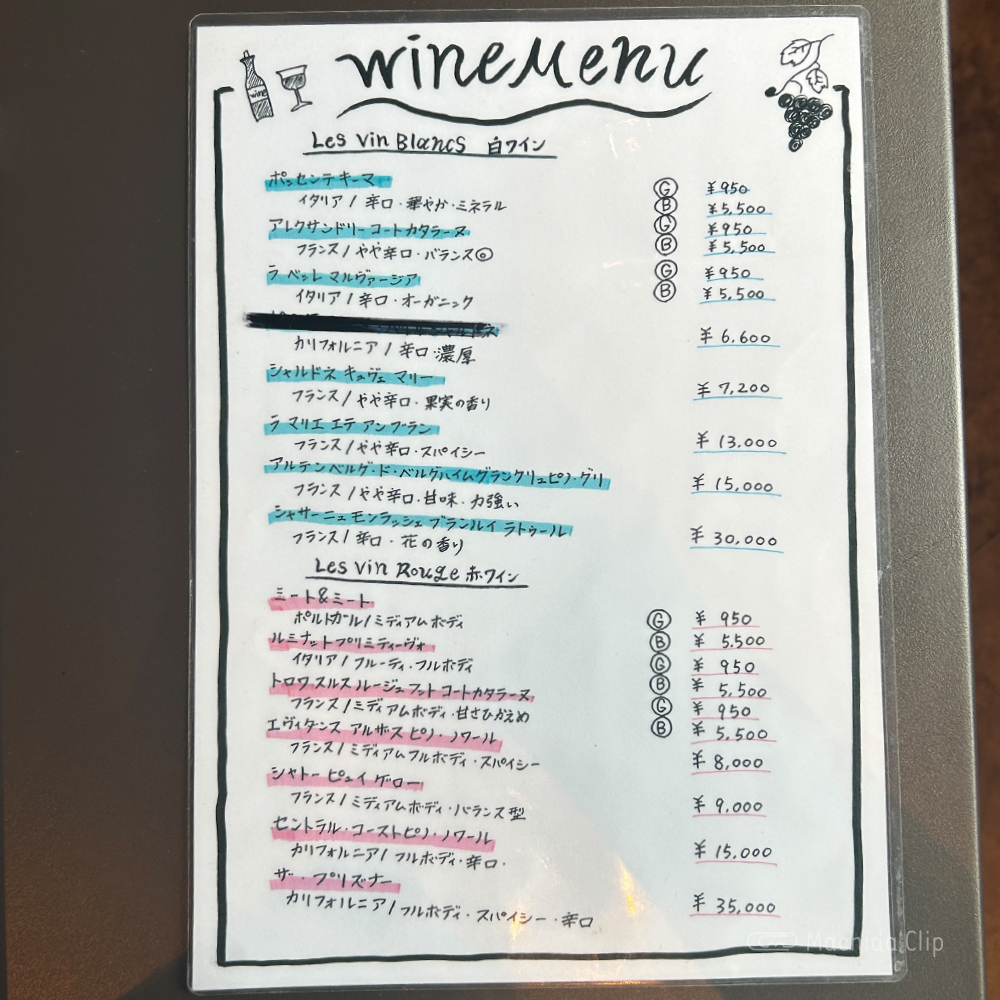 wine Menu
wine
Les Vin Blancs 白ワイン
ポッセンテ キーマ
イタリア / 辛口・華やか・ミネラル
Ⓖ ¥950
Ⓑ ¥5,500
アレクサンドリー コートカタラーヌ
フランス / やや辛口・バランス◎
Ⓖ ¥950
Ⓑ ¥5,500
ラ ベット マルヴァージア
イタリア / 辛口・オーガニック
Ⓖ ¥950
Ⓑ ¥5,500
カリフォルニア / 辛口・濃厚
¥6,600
シャルドネ キュヴェ マリー
フランス / やや辛口・果実の香り
¥7,200
ラ マリエ エテ アン ブラン
フランス / やや辛口・スパイシー
¥13,000
アルテンベルグ・ド・ベルグハイムグランクリュピノ・グリ
フランス / やや辛口・甘味・力強い
¥15,000
シャサーニュ モンラッシェ ブランルイ ラトゥール
フランス / 辛口・花の香り
¥30,000
Les Vin Rouge 赤ワイン
ミート&ミート
ポルトガル / ミディアムボディ
Ⓖ ¥950
Ⓑ ¥5,500
ルミナットプリミティーヴォ
イタリア / フルーティ・フルボディ
Ⓖ ¥950
Ⓑ ¥5,500
トロワ スルス ルージュ フット コートカタラーヌ
フランス / ミディアムボディ・甘さひかえめ
Ⓖ ¥950
Ⓑ ¥5,500
エヴィダンス アルザス ピノ・ノワール
フランス / ミディアムフルボディ・スパイシー
¥8,000
シャトー ピュイ ゲロー
フランス / ミディアムボディ・バランス型
¥9,000
セントラル・コーストピノ・ノワール
カリフォルニア / フルボディ・辛口・
¥15,000
ザ・プリズナー
カリフォルニア / フルボディ・スパイシー・辛口
¥35,000
Machida Clip